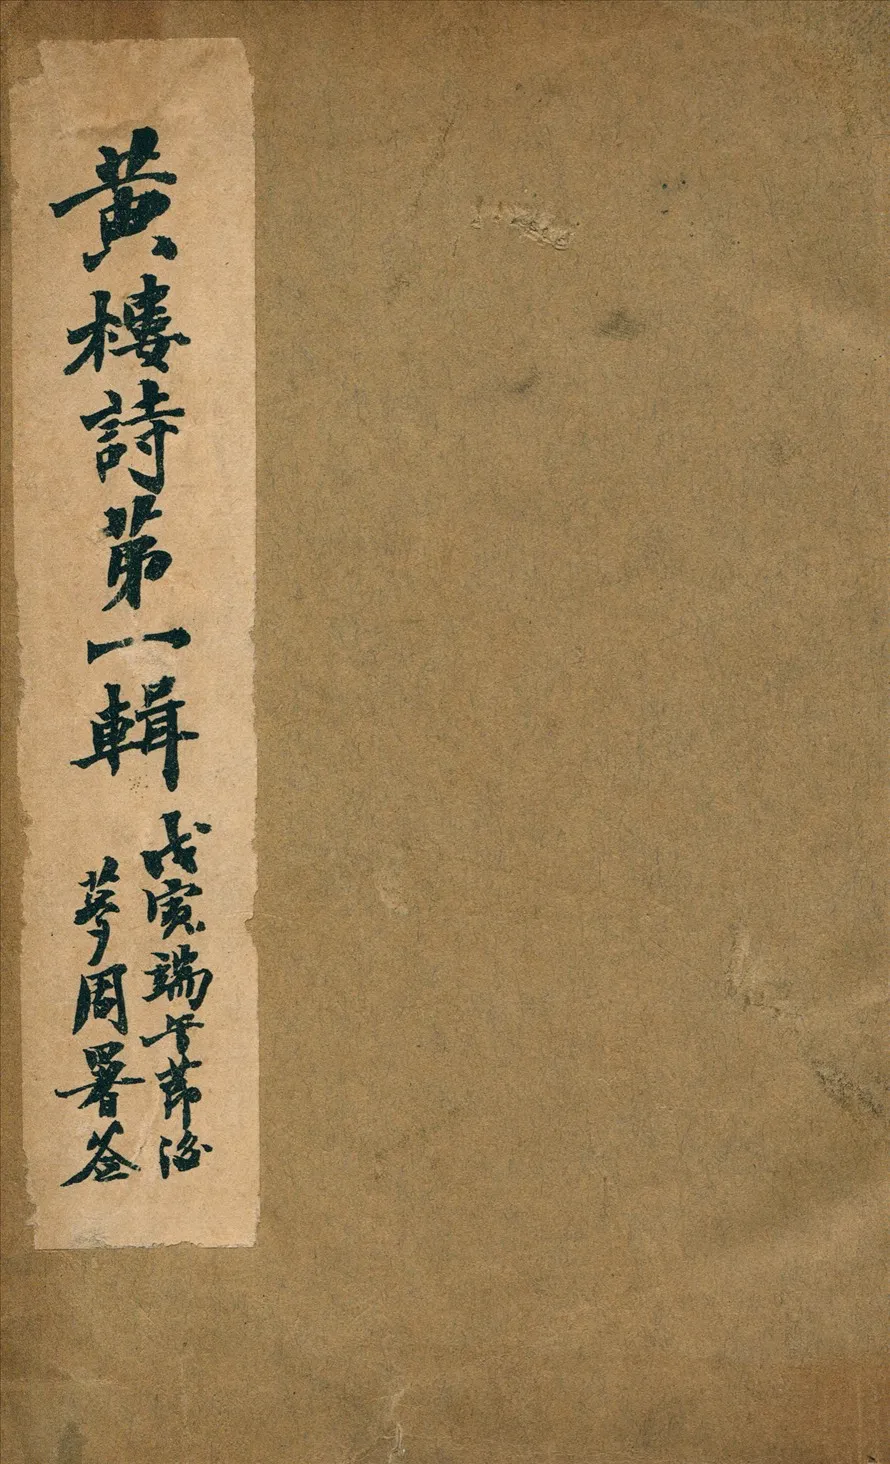 黃樓詩苐一輯
戊寅端午節後
夢周署签